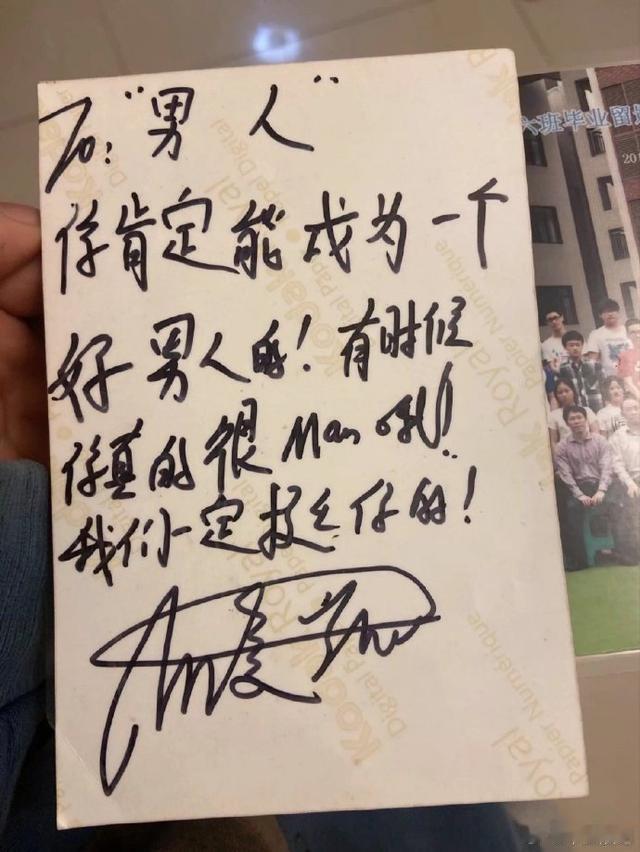 To:"男人"
你肯定能成为一个
好男人的!有时候
你真的很Man哦!
我们一定挺仔的!
六班毕业留
201
Kodak Royal
Digital Paper
Papier Numérique
Papel Digital